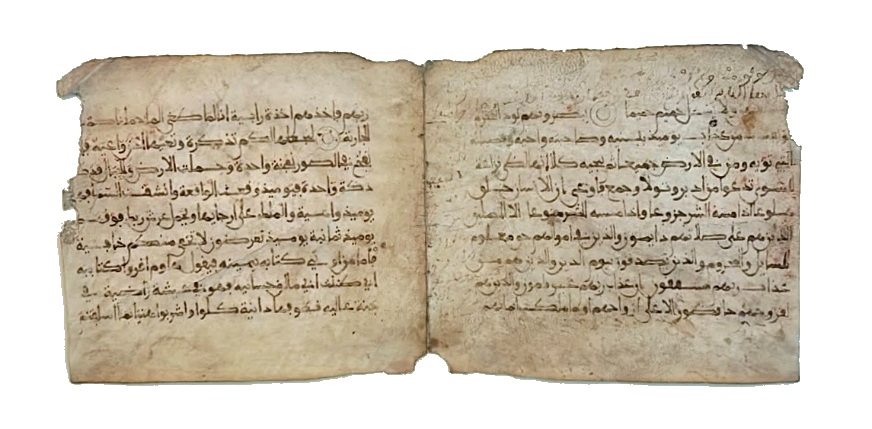 يسل حميم حميما يبصرونهم يود المجرم
من عذاب يوميذ ببنيه وصاحبته واخيه وفصيلته
التي تويه ومن في الارض جميعا ثم ينجيه كلا انها لظى نزاعة
للشوى تدعوا من ادبر وتولى وجمع فاوعى ان الانسان خلق
هلوعا اذا مسه الشر جزوعا واذا مسه الخير منوعا الا المصلين
الذين هم على صلاتهم دايمون والذين في اموالهم حق معلوم
للسايل والمحروم والذين يصدقون بيوم الدين والذين هم من
عذاب ربهم مشفقون ان عذاب ربهم غير مامون والذين هم
لفروجهم حافظون الا على ازواجهم او ما ملكت ايمانهم
ربهم فاخذهم اخذة رابية انا لما طغى الماء حملناكم في
الجارية لنجعلها لكم تذكرة وتعيها اذن واعية فاذا
نفخ في الصور نفخة واحدة وحملت الارض والجبال فدكتا
دكة واحدة فيوميذ وقعت الواقعة وانشقت السماء فهي
يوميذ واهية والملك على ارجايها ويحمل عرش ربك فوقهم
يوميذ ثمانية يوميذ تعرضون لا تخفى منكم خافية
فاما من اوتي كتابه بيمينه فيقول هاوم اقروا كتابيه
اني ظننت اني ملاق حسابيه فهو في عيشة راضية في
جنة عالية قطوفها دانية كلوا واشربوا هنيا بما اسلفتم